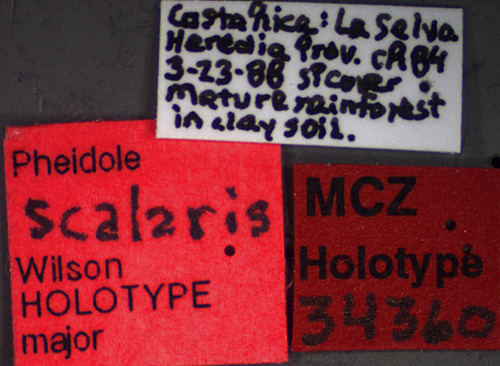 Costa Rica: La Selva
Heredia Prov. CR84
3-23-88 SPCover
mature rainforest
in clay soil.
Pheidole
scalaris
Wilson
HOLOTYPE
major
MCZ
Holotype
34360